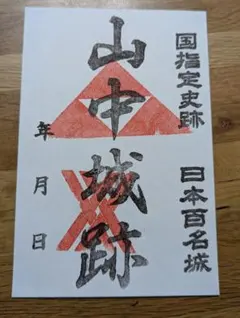 国指定史跡 日本百名城
山中城跡
年 月 日